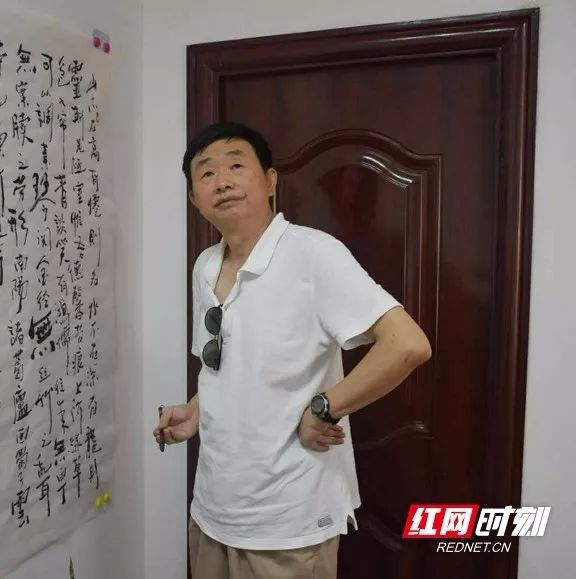 山不在高有僊則名水不在深有龍則
靈斯是陋室惟吾德馨苔痕上階綠草
色入簾青談笑有鴻儒往來無白丁
可以調素琴閱金經無絲竹之亂耳
無案牘之勞形南陽諸葛廬西蜀子雲
红网时刻
REDNET.CN